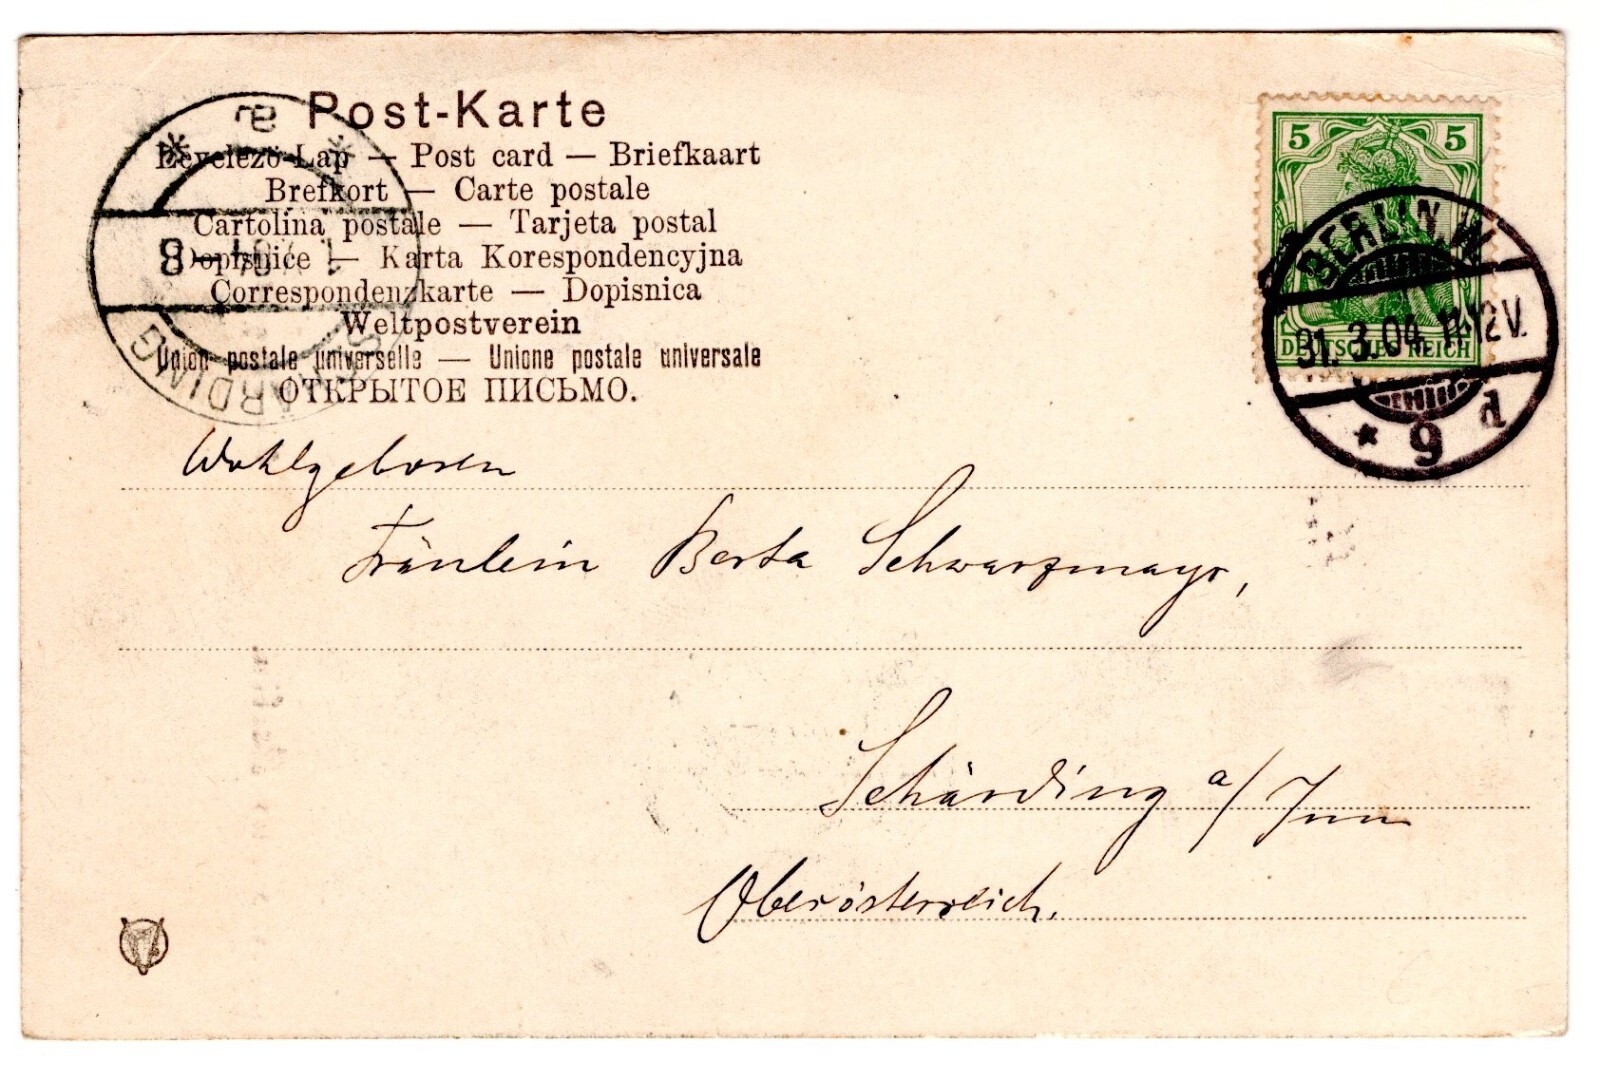 Post-Karte
Levelező-Lap — Post card — Briefkaart
Brefkort — Carte postale
Cartolina postale — Tarjeta postal
Dopisnice — Karta Korespondencyjna
Correspondenzkarte — Dopisnica
Weltpostverein
Union postale universelle — Unione postale universale
ОТКРЫТОЕ ПИСЬМО.
SCHÄRDING
a
1. 04 - 8
5 5
DEUTSCHES REICH
BERLIN.W.
31.3.04. 11-12V.
* 9 d
Wohlgeboren
Fräulein Berta Schwarzmayr,
Schärding a/Inn
Oberösterreich.